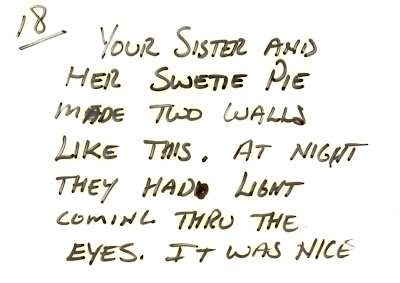 18
YOUR SISTER AND
HER SWETIE PIE
MADE TWO WALLS
LIKE THIS. AT NIGHT
THEY HAD LIGHT
COMING THRU THE
EYES. IT WAS NICE